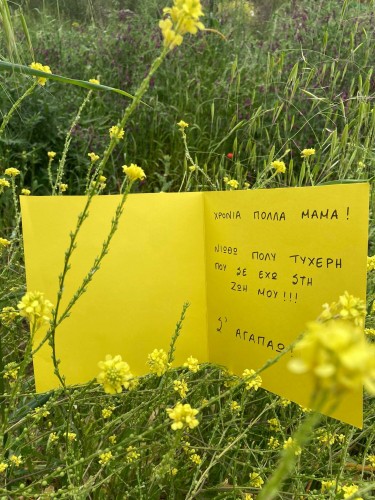 ΧΡΟΝΙΑ ΠΟΛΛΑ ΜΑΜΑ!
ΝΙΩΘΩ ΠΟΛΥ ΤΥΧΕΡΗ
ΠΟΥ ΣΕ ΕΧΩ ΣΤΗ
ΖΩΗ ΜΟΥ!!!
Σ' ΑΓΑΠΑΩ